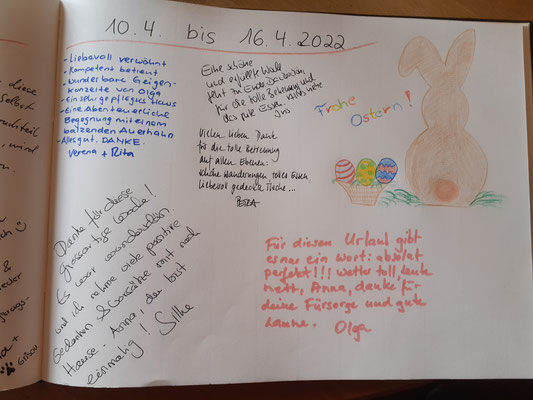 10.4. bis 16.4.2022
- Liebevoll verwöhnt
- Kompetent betreut
- Wunderbare Geigen-
Konzerte von Olga
- Ein sehr gepflegtes Haus
- Eine Abenteuerliche
Begegnung mit einem
balzenden Auerhahn
- Alles gut. DANKE.
Verena + Rita
Eine schöne
und erfüllte Woche
geht zu Ende. Dankeschön
für die tolle Betreuung und
das gute Essen. Alles Liebe
Iris
Vielen lieben Dank
für die tolle Betreuung
auf allen Ebenen:
schöne Wanderungen, tolles Essen,
liebevoll gedeckte Tische...
PETRA
Frohe
Ostern!
Danke für diese
grossartige Woche!
Es war wunderschön
und ich nehme viele positive
Gedanken & Vorsätze mit nach
Hause. Anna, du bist
einmalig! Silke
Für diesen Urlaub gibt
es nur ein Wort: absolut
perfekt!!! Wetter toll, Leute
nett, Anna, danke für
deine Fürsorge und gute
Laune. Olga
diese
selbst
wird
&